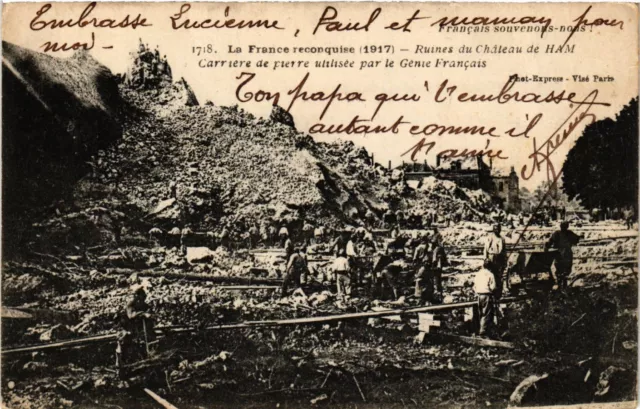 Embrasse Lucienne, Paul et maman pour
moi-
Français souvenons-nous !
1718. La France reconquise (1917) — Ruines du Château de HAM
Carrière de pierre utilisée par le Génie Français
Phot-Express - Visé Paris
Ton papa qui t'embrasse
autant comme il
t'aime